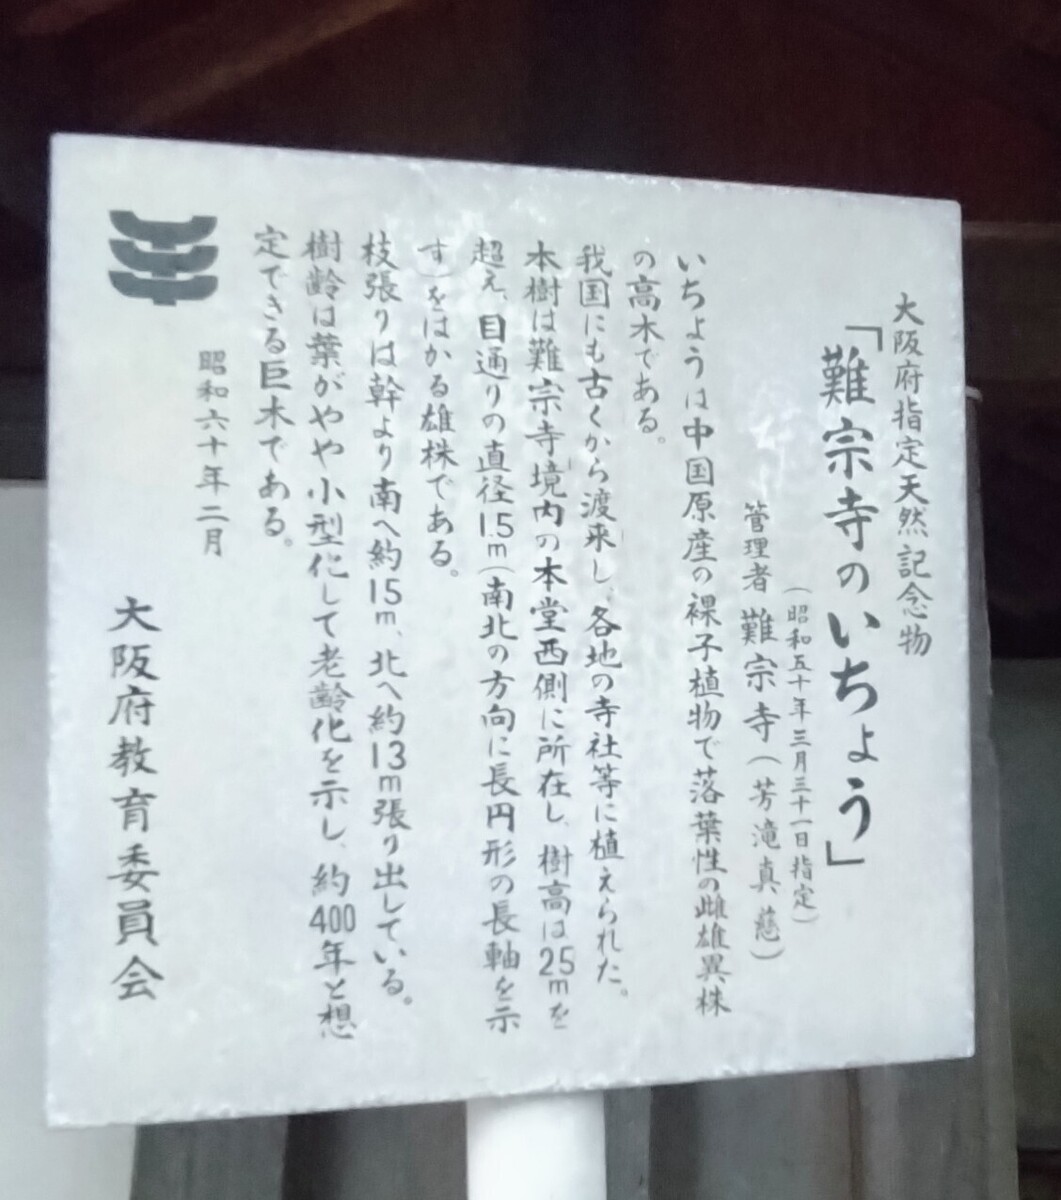 大阪府指定天然記念物
「難宗寺のいちょう」
(昭和五十年三月三十一日指定)
管理者 難宗寺(芳滝真慈)
いちょうは中国原産の裸子植物で落葉性の雌雄異株
の高木である。
我国にも古くから渡来し、各地の寺社等に植えられた。
本樹は難宗寺境内の本堂西側に所在し、樹高は25mを
超え、目通りの直径1.5m(南北の方向に長円形の長軸を示
す)をはかる雄株である。
枝張りは幹より南へ約15m、北へ約13m張り出している。
樹齢は葉がやや小型化して老齢化を示し、約400年と想
定できる巨木である。
昭和六十年二月
大阪府教育委員会